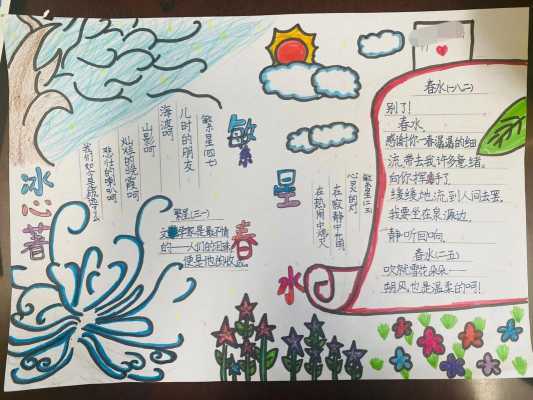 繁星
春水
冰心著
繁星(四七)
儿时的朋友
海波呵
山影呵
灿烂的晚霞呵
悲壮的喇叭呵
我们如今是疏远了么
繁星(二三)
心灵的灯
在寂静中光明
在热闹中熄灭
繁星(三一)
文学家是最不情
的——人们的泪珠
便是他的收成
春水(一八二)
别了!
春水,
感谢你一春潺潺的细
流,带去我许多意绪。
向你挥手了
缓缓地流到人间去罢。
我要坐在泉源边,
静听回响。
春水(二五)
吹就雪花朵朵——
朔风也是温柔的呵!